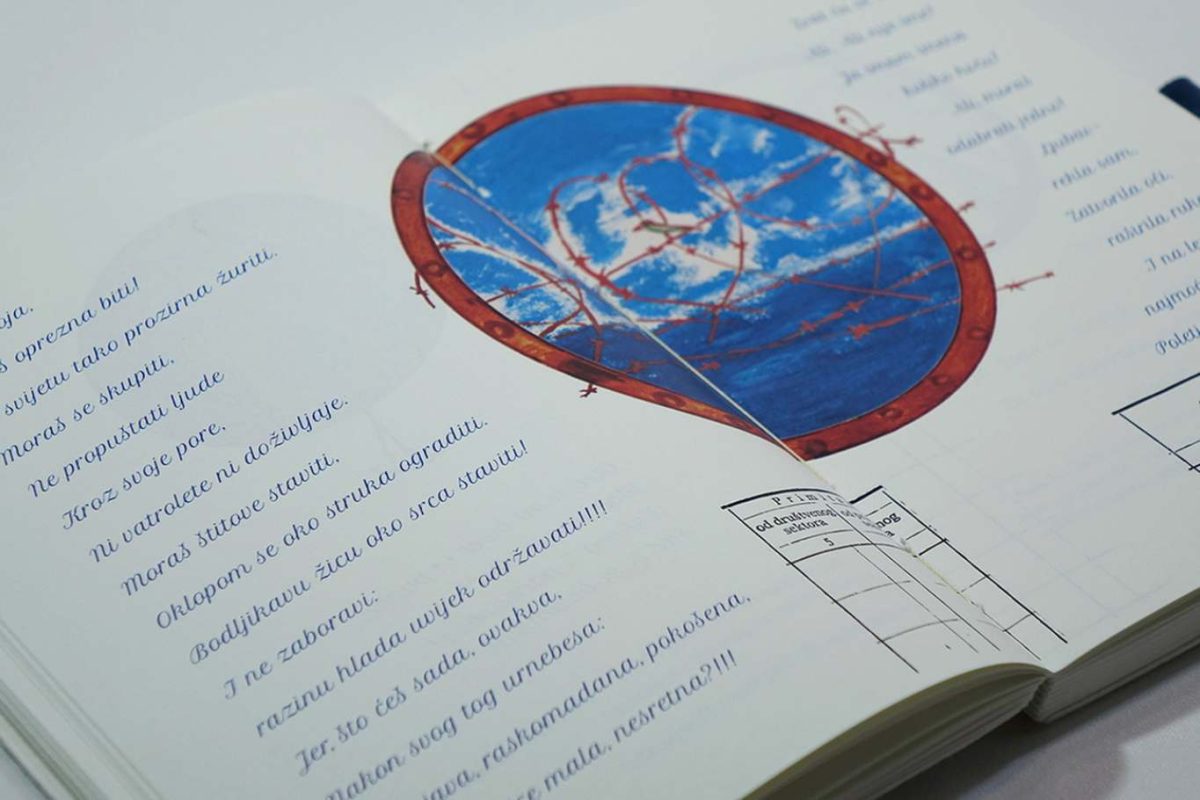 oja,
š oprezna biti!
svijetu tako prozirna žuriti.
Moraš se skupiti,
Ne propuštati ljude
Kroz svoje pore,
Ni vatrolete ni doživljaje.
Moraš štitove staviti,
Oklopom se oko struka ograditi.
Bodljikavu žicu oko srca staviti!
I ne zaboravi:
razinu hlada uvijek održavati!!!!
Jer, što ćeš sada, ovakva,
Nakon svog tog urnebesa:
java, raskomadana, pokošena,
mala, nesretna?!!!
Prim
od društvenog
sektora
5
nog
a
Ja imam
Ali, moraš
odabrati jedno!
Ljubav-
rekla sam.
Zatvorila oči,
raširila ruk
I na
najmo
Poleti